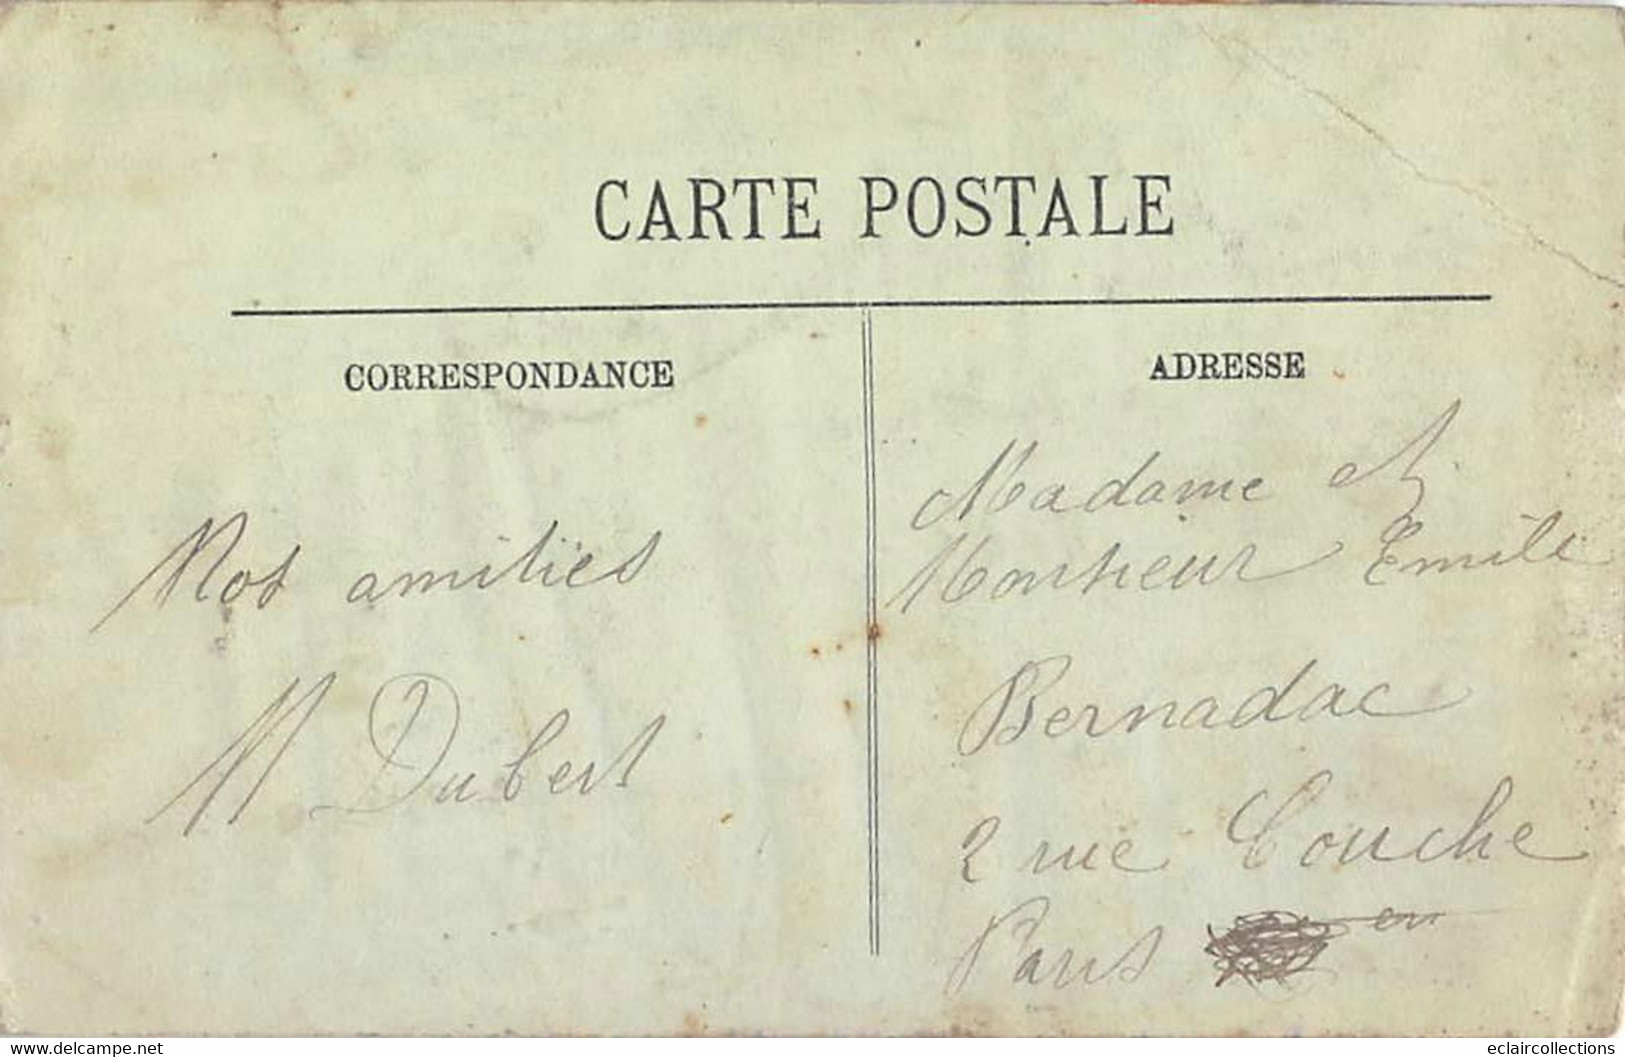 CARTE POSTALE
CORRESPONDANCE
Nos amitiés
M Dubert
ADRESSE
Madame et
Monsieur Emile
Bernadac
2 rue Couche
Paris em
www.delcampe.net
eclaircollections